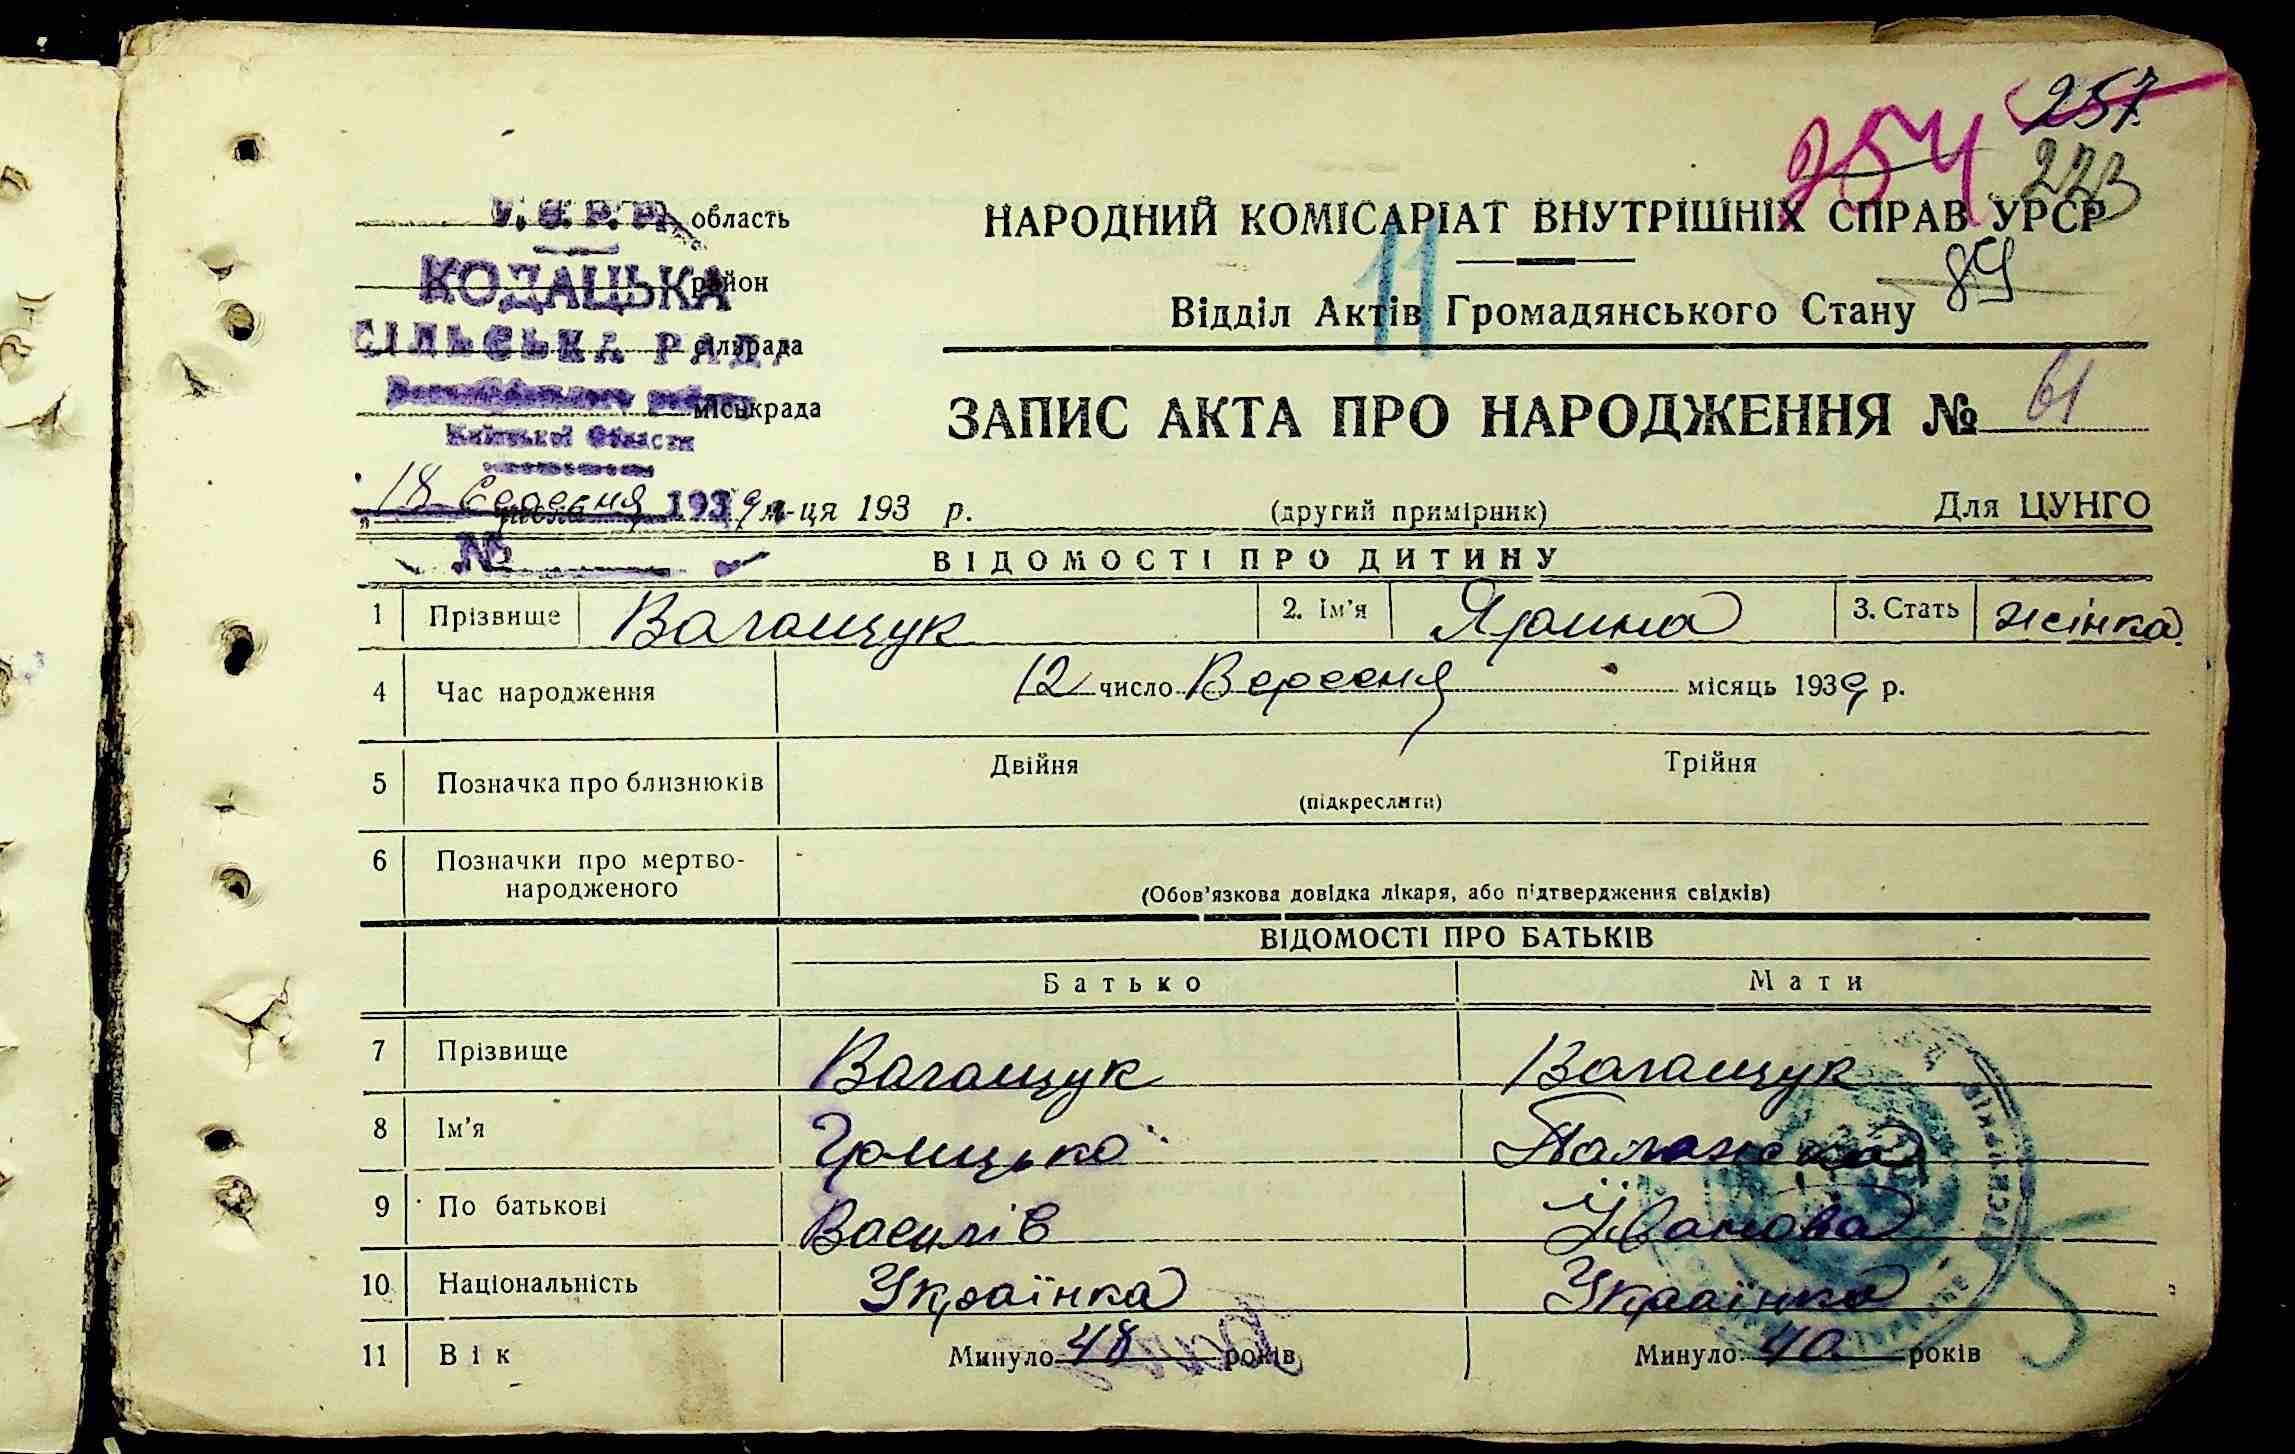 257
254
223
У. С. Р. Р. область
НАРОДНИЙ КОМІСАРІАТ ВНУТРІШНІХ СПРАВ УРСР
КОДАЦЬКА район
11
89
Відділ Актів Громадянського Стану
СІЛЬСЬКА РАДА сільрада
міськрада
Київської Области
ЗАПИС АКТА ПРО НАРОДЖЕННЯ № 61
18 Вересня 1939 м-ця 193 р.
(другий примірник)
Для ЦУНГО
№
ВІДОМОСТІ ПРО ДИТИНУ
1 Прізвище Вагащук 2. Ім'я Ярина 3. Стать жінка
4 Час народження 12 число Вересня місяць 1939 р.
5 Позначка про близнюків Двійня Трійня
(підкреслити)
6 Позначки про мертво-
народженого
(Обов'язкова довідка лікаря, або підтвердження свідків)
ВІДОМОСТІ ПРО БАТЬКІВ
Батько Мати
7 Прізвище Вагащук Вагащук
8 Ім'я Грицько Палажка
9 По батькові Василів Іванова
10 Національність Українка Українка
11 Вік Минуло 48 років Минуло 40 років